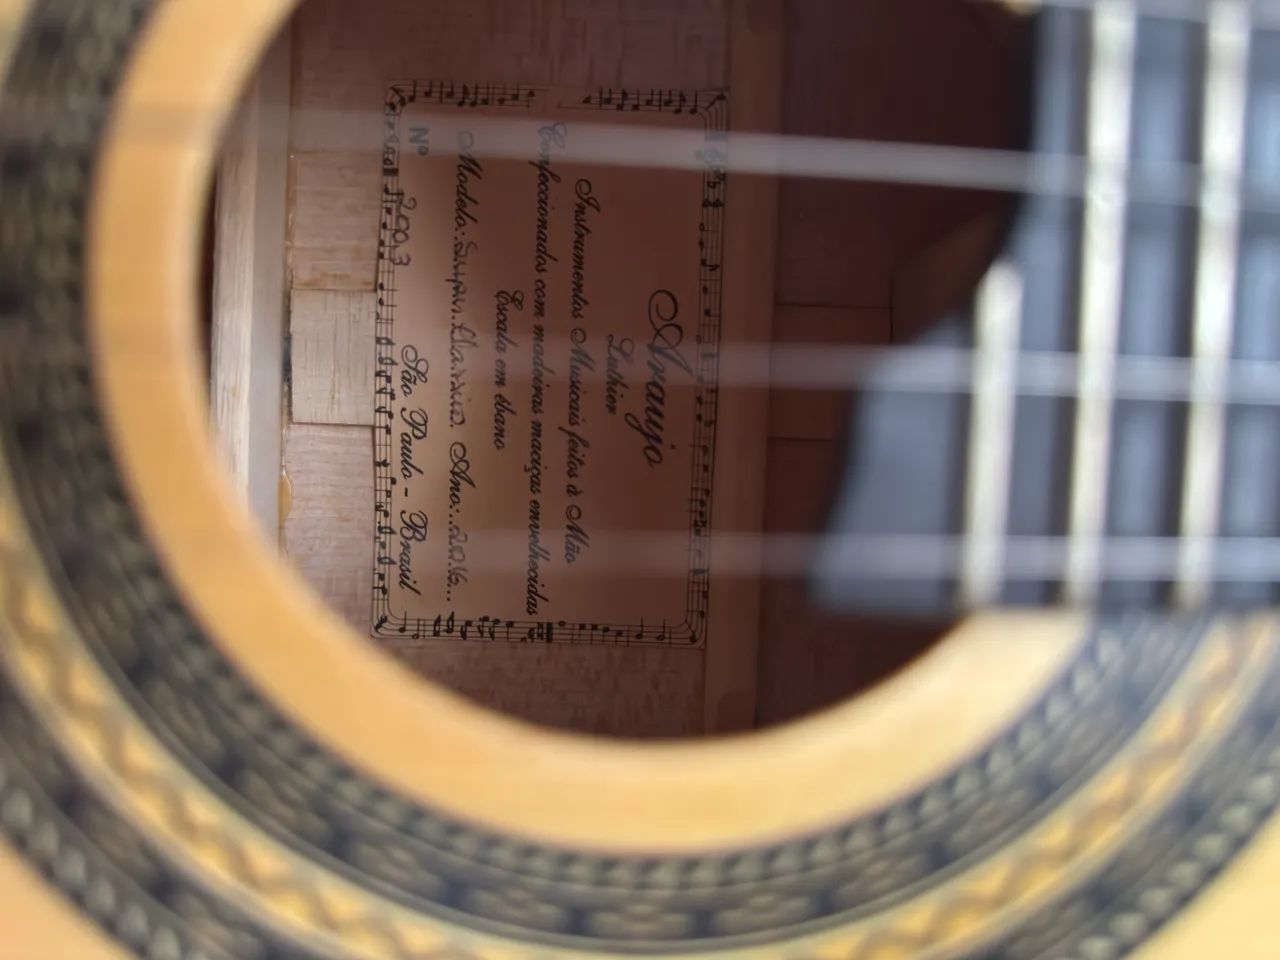 Araujo
Luthier
Instrumentos Musicais feitos à Mão
Confeccionados com madeiras maciças envelhecidas
Escala em ébano
Modelo: Super Classico. Ano:
Nº 2003 São Paulo - Brasil